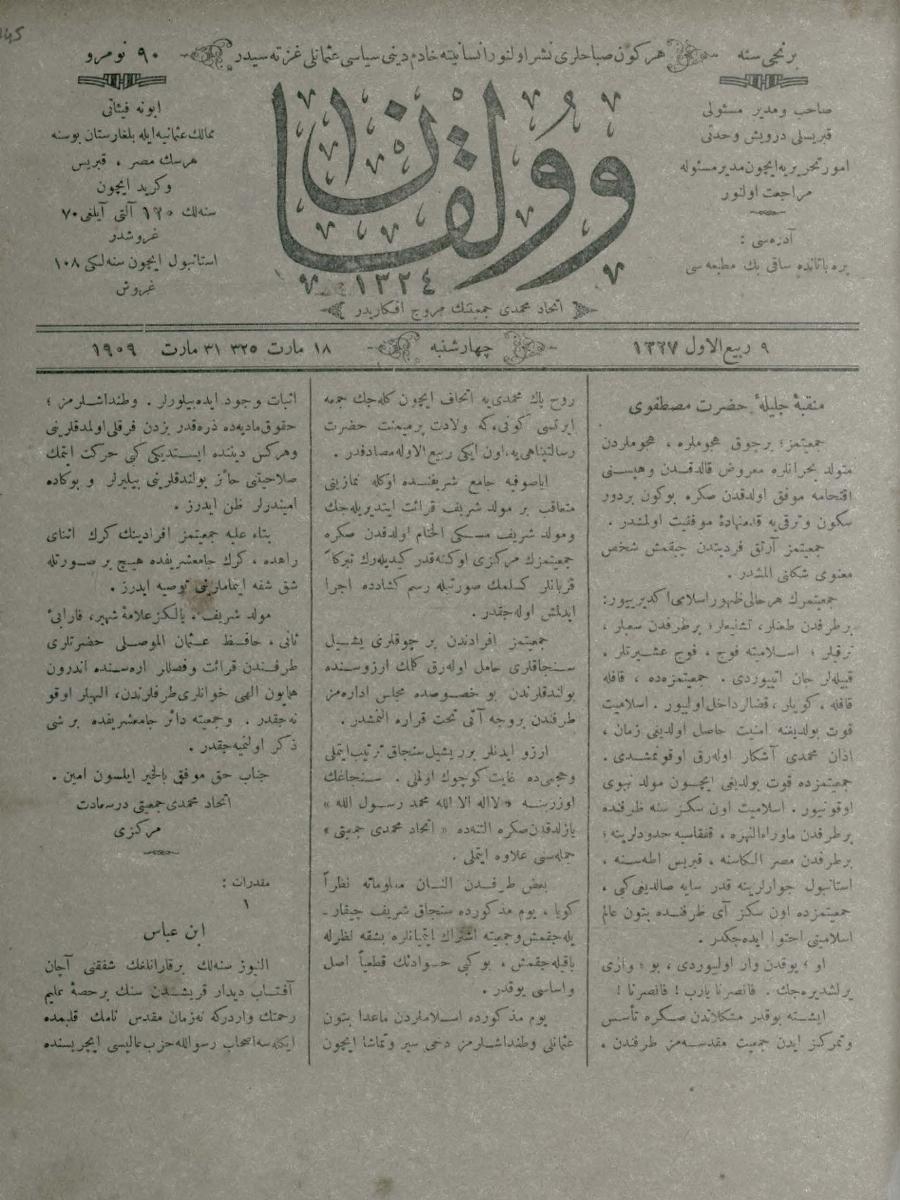 برنجی سنه
هر کون صباحلری نشر اولنور انسانیته خادم دینی سیاسی عثمانلی غزته سیدر
۹۰ نومرو
صاحب ومدیر مسئولی
قبریسلی درویش وحدتی
امور تحریریه ایچون مدیر مسئوله
مراجعت اولنور
آدره سی :
بره باتانده ساقی بك مطبعه سی
وولقان
۱۳۲٤
اتحاد محمدی جمعیتنك مروج افکاریدر
ابونه فیئاتی
ممالك عثمانیه ایله بلغارستان بوسنه
هرسك مصر ، قبریس
وکرید ایچون
سنه لك ۱۲۰ آلتی آیلغی ۷۰
غروشدر
استانبول ایچون سنه لکی ۱۰۸
غروش
۹ ربیع الاول ۱۳۲۷
چهارشنبه
۱۸ مارت ۳۲۵ ۳۱ مارت ۱۹۰۹
منقبۀ جلیلۀ حضرت مصطفوی
جمعیتمز ؛ برچوق هجوملره ، هجوملردن
متولد بحرانلره معروض قالدقدن وهپسنی
اقتحامه موفق اولدقدن صکره بوکون بردور
سکون وترقی یه قدمنهادۀ موفقیت اولمشدر .
جمعیتمز آرتق فردیتدن چیقمش شخص
معنوی شکلنی المشدر .
جمعیتمزك هر حالی ظهور اسلامی اکدیریور :
بر طرفدن طعنلر ، تشنیعلر ؛ بر طرفدن سعیلر ،
ترقیلر ؛ اسلامیته فوج ، فوج عشیرتلر ،
قبیله لر جان آتیوردی . جمعیتمزده ، قافله
قافله ، کویلر ، قضالر داخل اولیور . اسلامیت
قوت بولدیغنه امنیت حاصل اولدیغی زمان ،
اذان محمدی آشکار اوله رق اوقونمشدی .
جمعیتمزده قوت بولدیغی ایچون مولد نبوی
اوقونیور . اسلامیت اون سکز سنه ظرفنده
بر طرفدن ماوراءالنهره ، قفقاسیه حدودلرینه ؛
بر طرفدن مصر الکاسنه ، قبریس اطه سنه ،
استانبول جوارلرینه قدر سایه صالدیغی کی ،
جمعیتمزده اون سکز آی ظرفنده بتون عالم
اسلامیتی احتوا ایده جکدر .
او ؛ یوقدن وار اولیوردی ، بو ؛ واری
یرلشدیره جك . فانصرنا یارب ! فانصرنا !
ایشته بوقدر مشکلاتدن صکره تأسس
وتمرکز ایدن جمعیت مقدسه مز طرفندن ،
روح پاك محمدی یه اتحاف ایچون کله جك جمعه
ایرتسی کونی ، که ولادت پرمیمنت حضرت
رسالتپناهی یه ، اون ایکی ربیع الاوله مصادفدر .
ایاصوفیه جامع شریفنده اوکله نمازینی
متعاقب بر مولد شریف قرائت ایتدیریله جك
ومولد شریف مسکی الختام اولدقدن صکره
جمعیتمزك مرکزی اوکنه قدر کیدیله رك تبرکاً
قربانلر کسلمك صورتیله رسم کشادده اجرا
ایدلمش اوله جقدر .
جمعیتمز افرادندن بر چوقلری یشیل
سنجاقلری حامل اوله رق کلمك ارزوسنده
بولندقلرندن بو خصوصده مجلس اداره مز
طرفندن بروجه آتی تحت قراره النمشدر .
ارزو ایدنلر بر یشیل سنجاق ترتیب ایتملی
وحجمی ده غایت کوچوك اولملی . سنجاغك
اوزرینه « لا اله الا الله محمد رسول الله »
یازلدقدن صکره التنده « اتحاد محمدی جمعیتی »
جمله سنی علاوه ایتملی .
بعض طرفدن النان معلوماته نظراً
کویا ، یوم مذکورده سنجاق شریف چیقار ـ
یله جقمش وجمعیته اشتراك ایتمیانلره بشقه نظرله
باقیله جقمش ، بوکبی حوادثك قطعیاً اصل
واساسی یوقدر .
یوم مذکورده اسلاملردن ماعدا بتون
عثمانلی وطنداشلرمز دخی سیر وتماشا ایچون
اثبات وجود ایده بیلورلر . وطنداشلرمز ؛
حقوق مادیه ده ذره قدر بزدن فرقلی اولمدقلرینی
وهرکس دیننده ایستدیکی کبی حرکت ایتمك
صلاحیتنی حائز بولندقلرینی بیلیرلر و بوکاده
امیندرلر ظن ایدرز .
بناء علیه جمعیتمز افرادینك کرك اثنای
راهده ، کرك جامعشریفده هیچ بر صورتله
شق شفه ایتمامارینی توصیه ایدرز .
مولد شریف . یالکز علامۀ شهیر ، فارابی ٔ
ثانی ، حافظ عثمان الموصلی حضرتلری
طرفندن قرائت وفصللر اره سنده اندرون
همایون الهی خوانلری طرفلرندن ، الهیلر اوقو
نه جقدر . وجمعیته دائر جامعشریفده بر شی
ذکر اولنمیه جقدر .
جناب حق موفق بالخیر ایلسون امین .
اتحاد محمدی جمعیتی درسعادت
مرکزی
مقدرات :
۱
ابن عباس
آفتاب دیدار قریشدن سنك بر حصۀ
رحمتك واردر که نه زمان مقدس نامك قلبمده
ایکله سه اصحاب رسوالله حزب عالیسی ایچریسنده